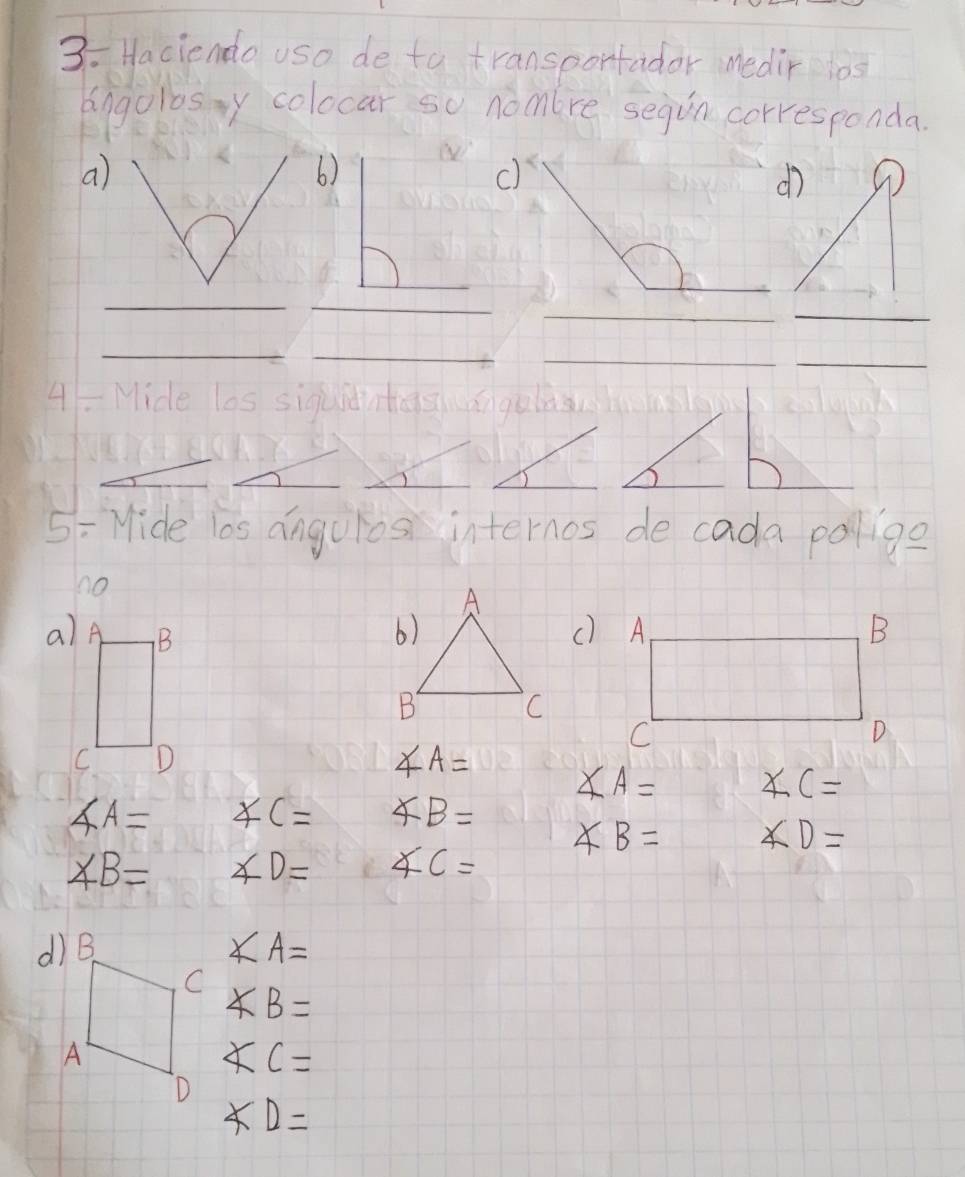 3.- Haciendo uso de tu transportador medir los
ángulos y colocar su nombre según corresponda.
a) b) c) d)
4.- Mide los siguientes ángulos
5.- Mide los ángulos internos de cada polígo
no
a) A B
C D
∡A= ∡C=
∡B= ∡D=
b) A
B C
∡A=
∡B=
∡C=
c) A B
C D
∡A= ∡C=
∡B= ∡D=
d) B
C
A
D
∡A=
∡B=
∡C=
∡D=